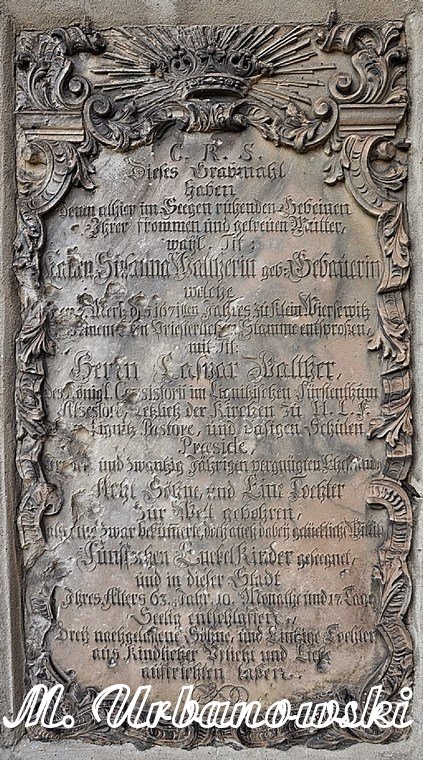 C. R. S.
Dieses Grabmahl
haben
denen alhier im Seegen ruhenden Gebeinen
Ihrer frommen und getreuen Mutter,
wayl. Tit:
Susanna Waltherin geb: Gebauerin
welche
Mert: des 1671sten Jahres zu Klein
Priesterlichen Stamme entsproßen,
mit Tit:
Herrn Caspar Walther,
Königl. Consistorii im Fürstenthum
Assessore, letzlich der Kirchen zu U. L. F.
Pastore, und dasigen Schulen
Præside,
und zwantzig Jährigen vergnügten
Acht Söhne, und Eine Tochter
zur Welt gebohren,
zwar bekümerte, doch auch dabey glückliche
Funffzehen Enckel Kinder gesegnet,
und in dieser Stadt
Ihres Alters 63. Jahr. 10. Monathe und 17. Tage
Seelig entschlaffen,
Drey nachgelaßene Söhne, und Eintzige Tochter
aus Kindlicher Pflicht und Liebe
auffrichten laßen.
M. Urbanowski